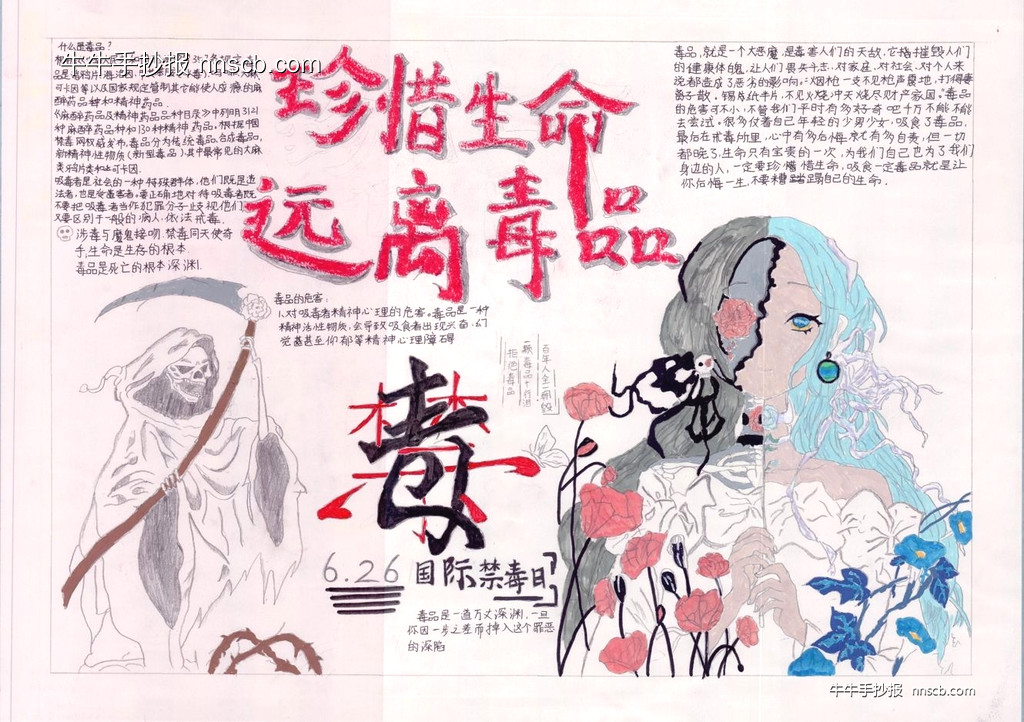 什么是毒品?
牛牛手抄报 nnscb.com
可卡因等以及国家规定管制其它能使人应瘾的麻
醉药品种和精神药品.
种麻醉药品种和130种精神药品,根据中国
禁毒网权威发布,毒品分为传统毒品,合成毒品,
新精神性物质(新型毒品).其中最常见的大麻
类鸦片类和止可卡因.
吸毒者是社会的一种特殊群体,他们既是违
法者,也是受害者.要正确地对待吸毒者既
不要把吸毒者当作犯罪分子歧视他们
又要区别于一般的病人,依法戒毒.
涉毒与魔鬼接吻.禁毒同天使牵
手,生命是生存的根本
毒品是死亡的根本深渊.
珍惜生命
远离毒品
毒品,就是一个大恶魔,是毒害人们的天敌,它格摧毁人们
的健康体魄,让人们丧失斗志.对家庭.对社会.对个人来
说都造成了恶劣的影响."烟枪一支不见枪声震地,打得妻
离子散.锡纸半片,不见火烧中天烧尽财产家园."毒品
的危害可不小,不管我们平时有多好奇吧千万不能不能
去尝试.很多仗着自己年轻的少男少女,吸食了毒品,
最后在戒毒所里,心中有多后悔就有多自责,但一切
都晚了,生命只有宝贵的一次,为我们自己也为了我们
身边的人,一定要珍惜生命,吸食一定毒品就是让
你后悔一生,不要糟蹋自己的生命.
毒品的危害:
1.对吸毒者精神心理的危害.毒品是一种
精神活性物质,会导致吸食者出现兴奋.幻
觉甚至抑郁等精神心理障碍
拒绝毒品
禁
毒
6.26 国际禁毒日
毒品是一道万丈深渊,一旦
你因一步之差而掉入这个罪恶
的深陷
牛牛手抄报 nnscb.com